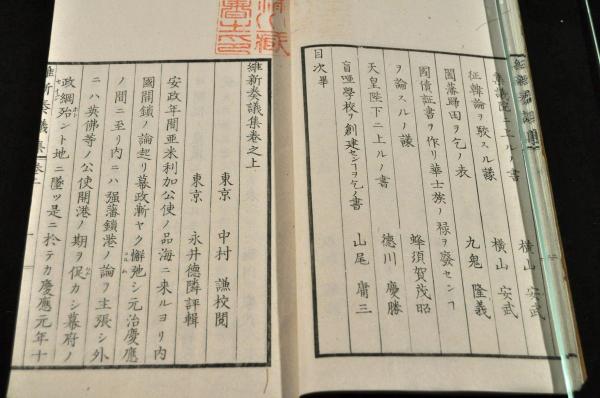 集議院ニ上ルノ書 横山 安武
征韓論ヲ駁スル議 横山 安武
圖藩歸田ヲ乞ノ表 九鬼 隆義
國債証書ヲ作リ華士族ノ禄ヲ發センヿヲ論スルノ議 蜂須賀茂昭
天皇陛下ニ上ルノ書 德川 慶勝
盲唖學校ヲ創建センヿヲ乞ノ書 山尾 庸三
目次畢
維新奏議集卷之上
東京 中村 謙校閲
東京 永井德隣評輯
安政年間亜米利加公使ノ品海ニ來ルヨリ内
國開鎖ノ論起リ幕政漸ヤク懈弛シ元治慶應
ノ間ニ至リ内ニハ强藩鎖港ノ論ヲ主張シ外
ニハ英佛等ノ公使開港ノ期ヲ促カシ幕府ノ
政綱殆ント地ニ墜ツ是ニ於テカ慶應元年十
維新奏議集